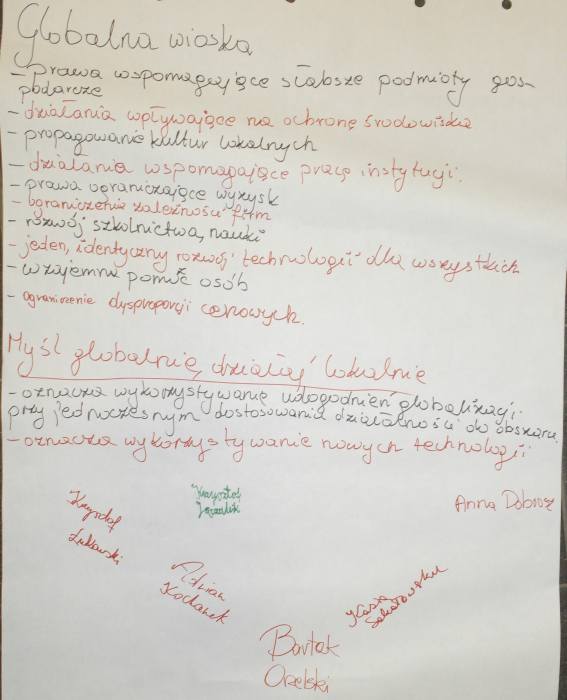 Globalna wioska
- prawa wspomagające słabsze podmioty gos-
podarcze
- działania wpływające na ochronę środowiska
- propagowanie kultur lokalnych
- działania wspomagające pracę instytucji.
- prawa ograniczające wyzysk
- ograniczenie zależności firm
- rozwój szkolnictwa, nauki
- jeden, identyczny rozwój technologii dla wszystkich
- wzajemna pomoc osób
- ograniczenie dysproporcji cenowych.
Myśl globalnie, działaj lokalnie
- oznacza wykorzystywanie udogodnień globalizacji
przy jednoczesnym dostosowaniu działalności do obszaru
- oznacza wykorzystywanie nowych technologii
Krzysztof
Anna Dobrosz
Krzysztof
Łukowski
Adrian
Kochanek
Kasia
Bartek
Orzelski